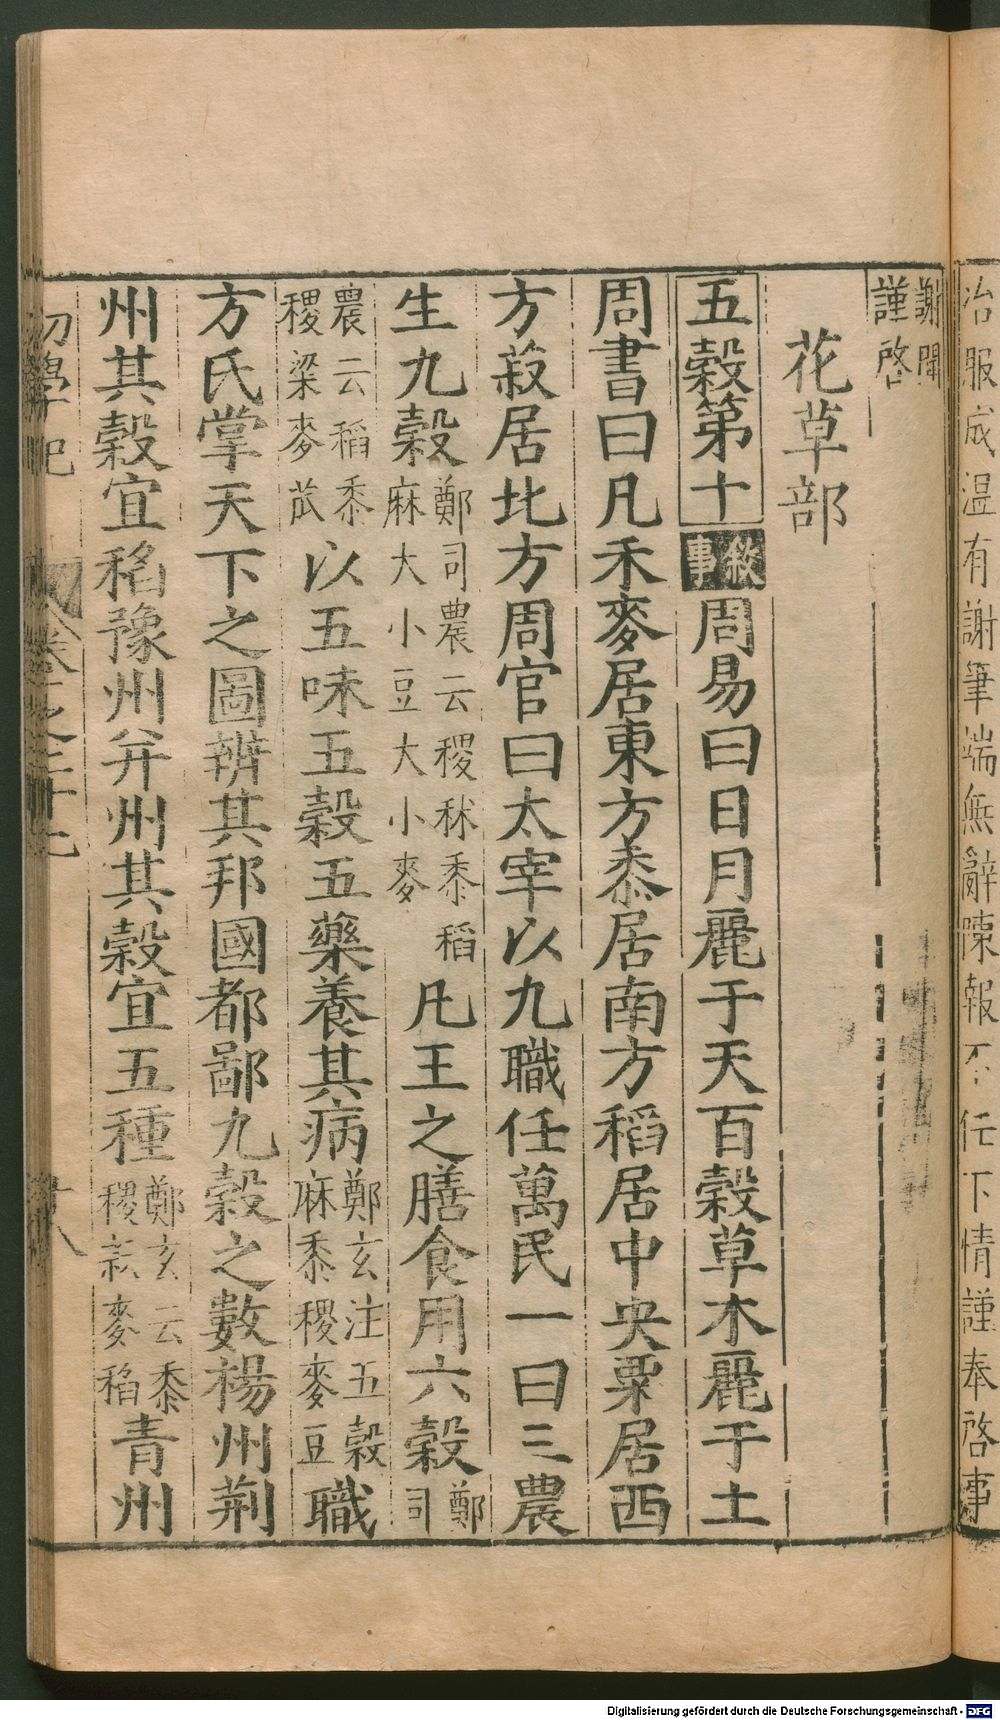 冶服成溫有謝筆端無辭陳報不任下情謹奉啓事
謝聞
謹啓
花草部
五穀第十
敘事
周易曰日月麗于天百穀草木麗于土
周書曰凡禾麥居東方黍居南方稻居中央粟居西
方菽居北方周官曰太宰以九職任萬民一曰三農
生九穀
鄭司農云稷秫黍稻
麻大小豆大小麥
凡王之膳食用六穀
鄭
司
農云稻黍
稷粱麥苽
以五味五穀五藥養其病
鄭玄注五穀
麻黍稷麥豆
職
方氏掌天下之圖辨其邦國都鄙九穀之數楊州荆
州其穀宜稻豫州并州其穀宜五種
鄭玄云黍
稷菽麥稻
青州
初學記
卷之二十七
十八
Digitalisierung gefördert durch die Deutsche Forschungsgemeinschaft - DFG